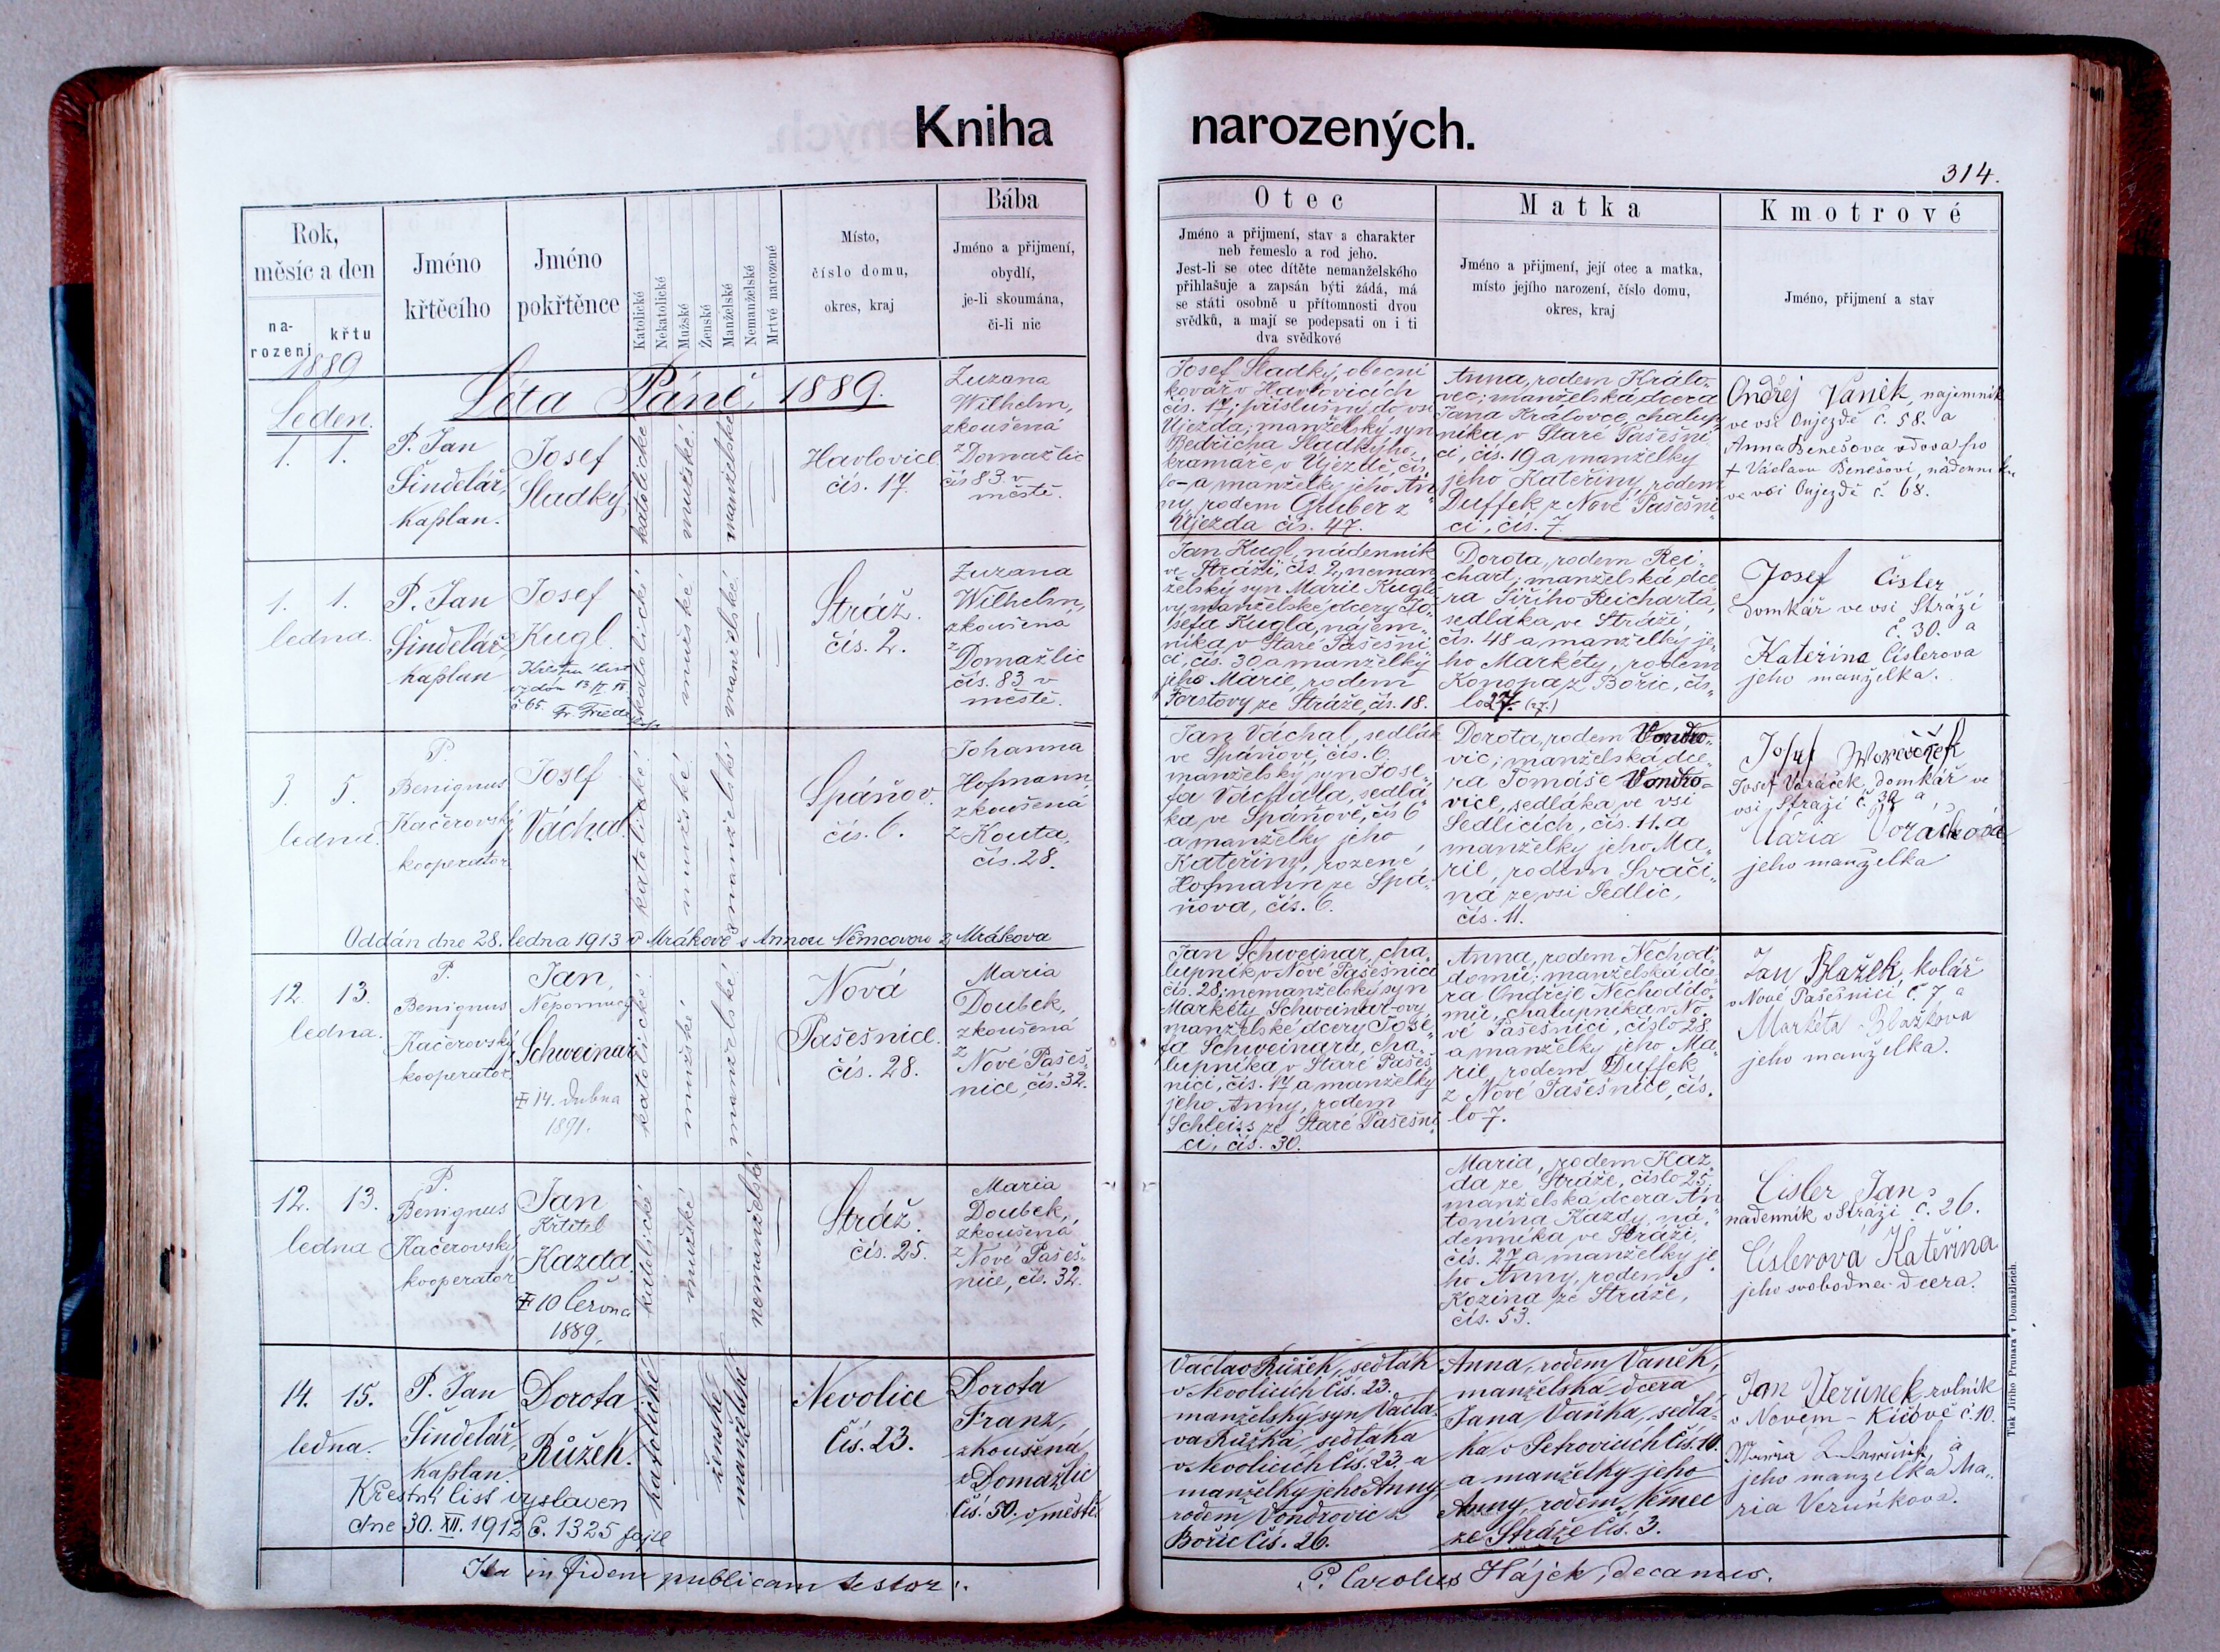 Kniha narozených.
314.
Rok,
měsíc a den
na-
rození
křtu
Jméno
křtěcího
Jméno
pokřtěnce
Katolické
Nekatolické
Mužské
Ženské
Manželské
Nemanželské
Mrtvé narozené
Místo,
číslo domu,
okres, kraj
Bába
Jméno a přijmení,
obydlí,
je-li skoumána,
či-li nic
Otec
Jméno a přijmení, stav a charakter
neb řemeslo a rod jeho.
Jest-li se otec dítěte nemanželského
přihlašuje a zapsán býti žádá, má
se státi osobně u přítomnosti dvou
svědků, a mají se podepsati on i ti
dva svědkové
Matka
Jméno a přijmení, její otec a matka,
místo jejího narození, číslo domu,
okres, kraj
Kmotrové
Jméno, přijmení a stav
1889
Leden.
Léta Páně, 1889.
1. 1.
P. Jan
Šindelář,
kaplan.
Josef
Sladký
katolické
mužské
manželské
Havlovice
čís. 17.
Zuzana
Wilhelm,
zkoušená
z Domažlic
čís 83. v
městě.
Josef Sladký, obecní
kovář v Havlovicích
čís. 17; příslušný do vsi
Újezda; manželský syn
Bedřicha Sladkýho,
kramáře v Újezdě, čís.
a manželky jeho An-
ny, rodem Gruber z
Újezda čís. 47.
Anna, rodem Králo-
vec; manželská dcera
Jana Královce, chalup-
níka v Staré Pašešni-
ci, čís. 19 a manželky
jeho Kateřiny, rodem
Duffek z Nové Pašešni-
ci, čís. 7.
Ondřej Vaněk, najemník
ve vsi Oujezdě č. 58. a
Anna Benešova vdova po
† Václavu Benešovi, nádenníku
ve vsi Oujezdě č. 68.
1. 1.
ledna.
P. Jan
Šindelář,
kaplan
Josef
Kugl.
Křestní list
vydán 13
č 65. Fr.
katolické
mužské
manželské
Stráž.
čís. 2.
Zuzana
Wilhelm,
zkoušena
z
Domažlic
čís. 83 v
městě.
Jan Kugl, nádenník
ve Stráži, čís. 2, neman-
želský syn Marie Kuglo-
vy manželské dcery Jo-
sefa Kugla, nájem-
níka v Staré Pašešni-
ci, čís. 30 a manželky
jeho Marie, rodem
Forstovy ze Stráže, čís. 18.
Dorota, rodem Rei-
chart; manželská dce-
ra Jiřího Reicharta,
sedláka ve Stráži,
čís. 48 a manželky je-
ho Markéty, rodem
Konopa z Bořic, čís-
lo 27.
Josef Cisler
domkář ve vsi Stráži
č. 30. a
Kateřina Cislerova
jeho manželka.
3. 5.
ledna.
P.
Benignus
Kačerovský,
kooperátor
Josef
Váchal.
katolické
mužské
manželské
Spáňov.
čís. 6.
Johanna
Hofmann,
zkoušená
z Kouta,
čís. 28.
Jan Váchal, sedlák
ve Spáňově, čís. 6
manželský syn Jose-
fa Váchala, sedlá-
ka ve Spáňově, čís 6
a manželky jeho
Kateřiny, rozené
Hofmann ze Spá-
ňova, čís. 6.
Dorota, rodem Vondro-
vic; manželská dce-
ra Tomáše Vondro-
vice, sedláka ve vsi
Sedlicích, čís. 11. a
manželky jeho Ma-
rie, rodem Svači-
na ze vsi Sedlic,
čís. 11.
Josef Woráček
Josef Voráček, domkář ve
vsi Stráži č. 32 a
Maria Voráčková
jeho manželka
Oddán dne 28. ledna 1913 v Mrákově s Annou Němcovou z Mrákova
12. 13.
ledna.
P.
Benignus
Kačerovský,
kooperátor,
Jan
Nepomucký
Schweinar
† 14. dubna
1891.
katolické
mužské
manželské
Nová
Pašešnice.
čís. 28.
Maria
Doubek,
zkoušená
z
Nové Pašeš-
nice, čís. 32.
Jan Schweinar, cha-
lupník v Nové Pašešnici
čís. 28; nemanželský syn
Markéty Schweinar-ovy
manželské dcery Jose-
fa Schweinara, cha-
lupníka v Staré Pašeš-
nici, čís. 17 a manželky
jeho Anny, rodem
Schleiss ze Staré Pašešni-
ci, čís. 30.
Anna, rodem Nechod-
domů; manželská dce-
ra Ondřeje Nechoďdo-
mů, chalupníka v No-
vé Pašešnici, číslo 28.
a manželky jeho Ma-
rie, rodem Duffek
z Nové Pašešnice, čís-
lo 7.
Jan Blažek, kolář
v Nové Pašešnici č. 7 a
Marketa Blažkova
jeho manželka.
12. 13.
ledna
P.
Benignus
Kačerovský,
kooperátor
Jan
Křtitel
Kazda.
† 10 června
1889.
katolické
mužské
nemanželské
Stráž.
čís. 25.
Maria
Doubek,
zkoušená
z
Nové Pašeš-
nice, čís. 32.
Maria, rodem Kaz-
da ze Stráže, číslo 25;
manželská dcera An-
tonína Kazdy, ná-
denníka ve Stráži,
čís. 27 a manželky je-
ho Anny, rodem
Kozina ze Stráže,
čís. 53.
Cisler Jan
nadenník v Stráži č. 26.
Cislerova Kateřina
jeho svobodna dcera.
14. 15.
ledna.
P. Jan
Šindelář,
kaplan.
Dorota
Růžek.
katolické
ženské
manželské
Nevolice
čís. 23.
Dorota
Franz,
zkoušená,
z Domažlic
čís. 50. v městě.
Václav Růžek, sedlák
v Nevolicích čís. 23.
manželský syn Václa-
va Růžka, sedláka
v Nevolicích čís. 23. a
manželky jeho Anny
rodem Vondrovic z
Bořic čís. 26.
Anna, rodem Vaněk,
manželská dcera
Jana Vaňka, sedlá-
ka v Petrovicích čís. 10.
a manželky jeho
Anny, rodem Němec
ze Stráže čís. 3.
Jan Verunek, rolník
v Novém-Kíčově č. 10.
a
jeho manželka Ma-
ria Veruňkova.
Křestní list vystaven
dne 30. XII. 1912 č. 1325
Ita in fidem publicam testor:
P. Carolus Hájek, decanus.
Tisk Jiřího Prunara v Domažlicích.